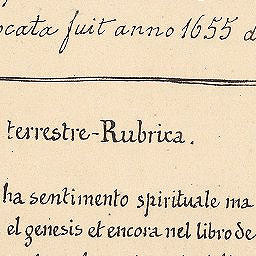 ocata fuit anno 1655 d
terrestre-Rubrica.
ha sentimento spirituale ma
el genesis et encora nel libro de